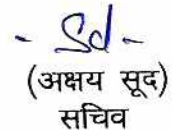 - Sd -
(अक्षय सूद)
सचिव